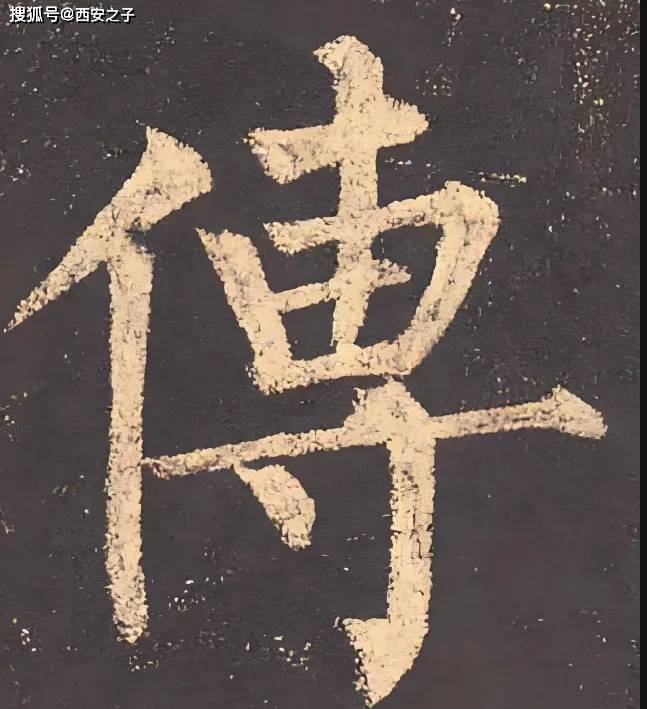 搜狐号@西安之子
傳